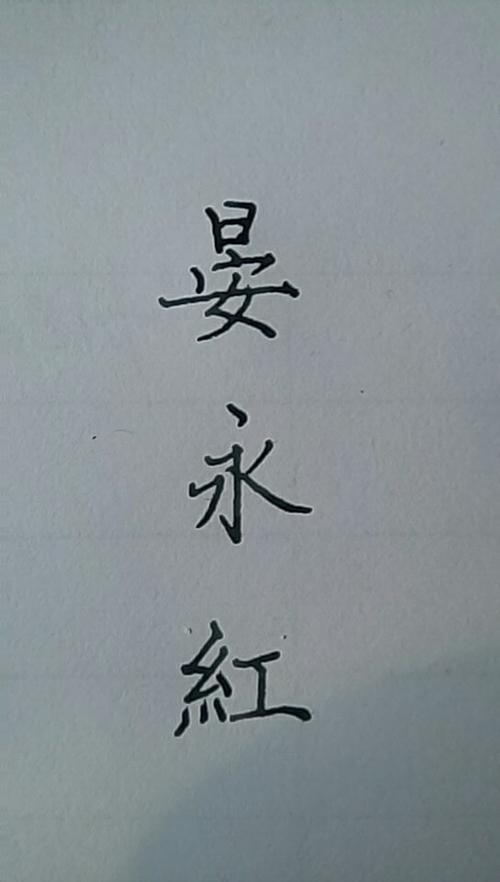 晏永紅